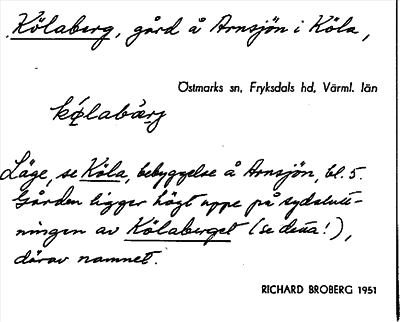 Kölaberg, gård å Arnsjön i Köla,
Östmarks sn, Fryksdals hd, Värml. län
Läge, se Köla, bebyggelse å Arnsjön, bl. 5.
Gården ligger högt uppe på sydslutt-
ningen av Kölaberget (se detta!),
därav namnet.
RICHARD BROBERG 1951